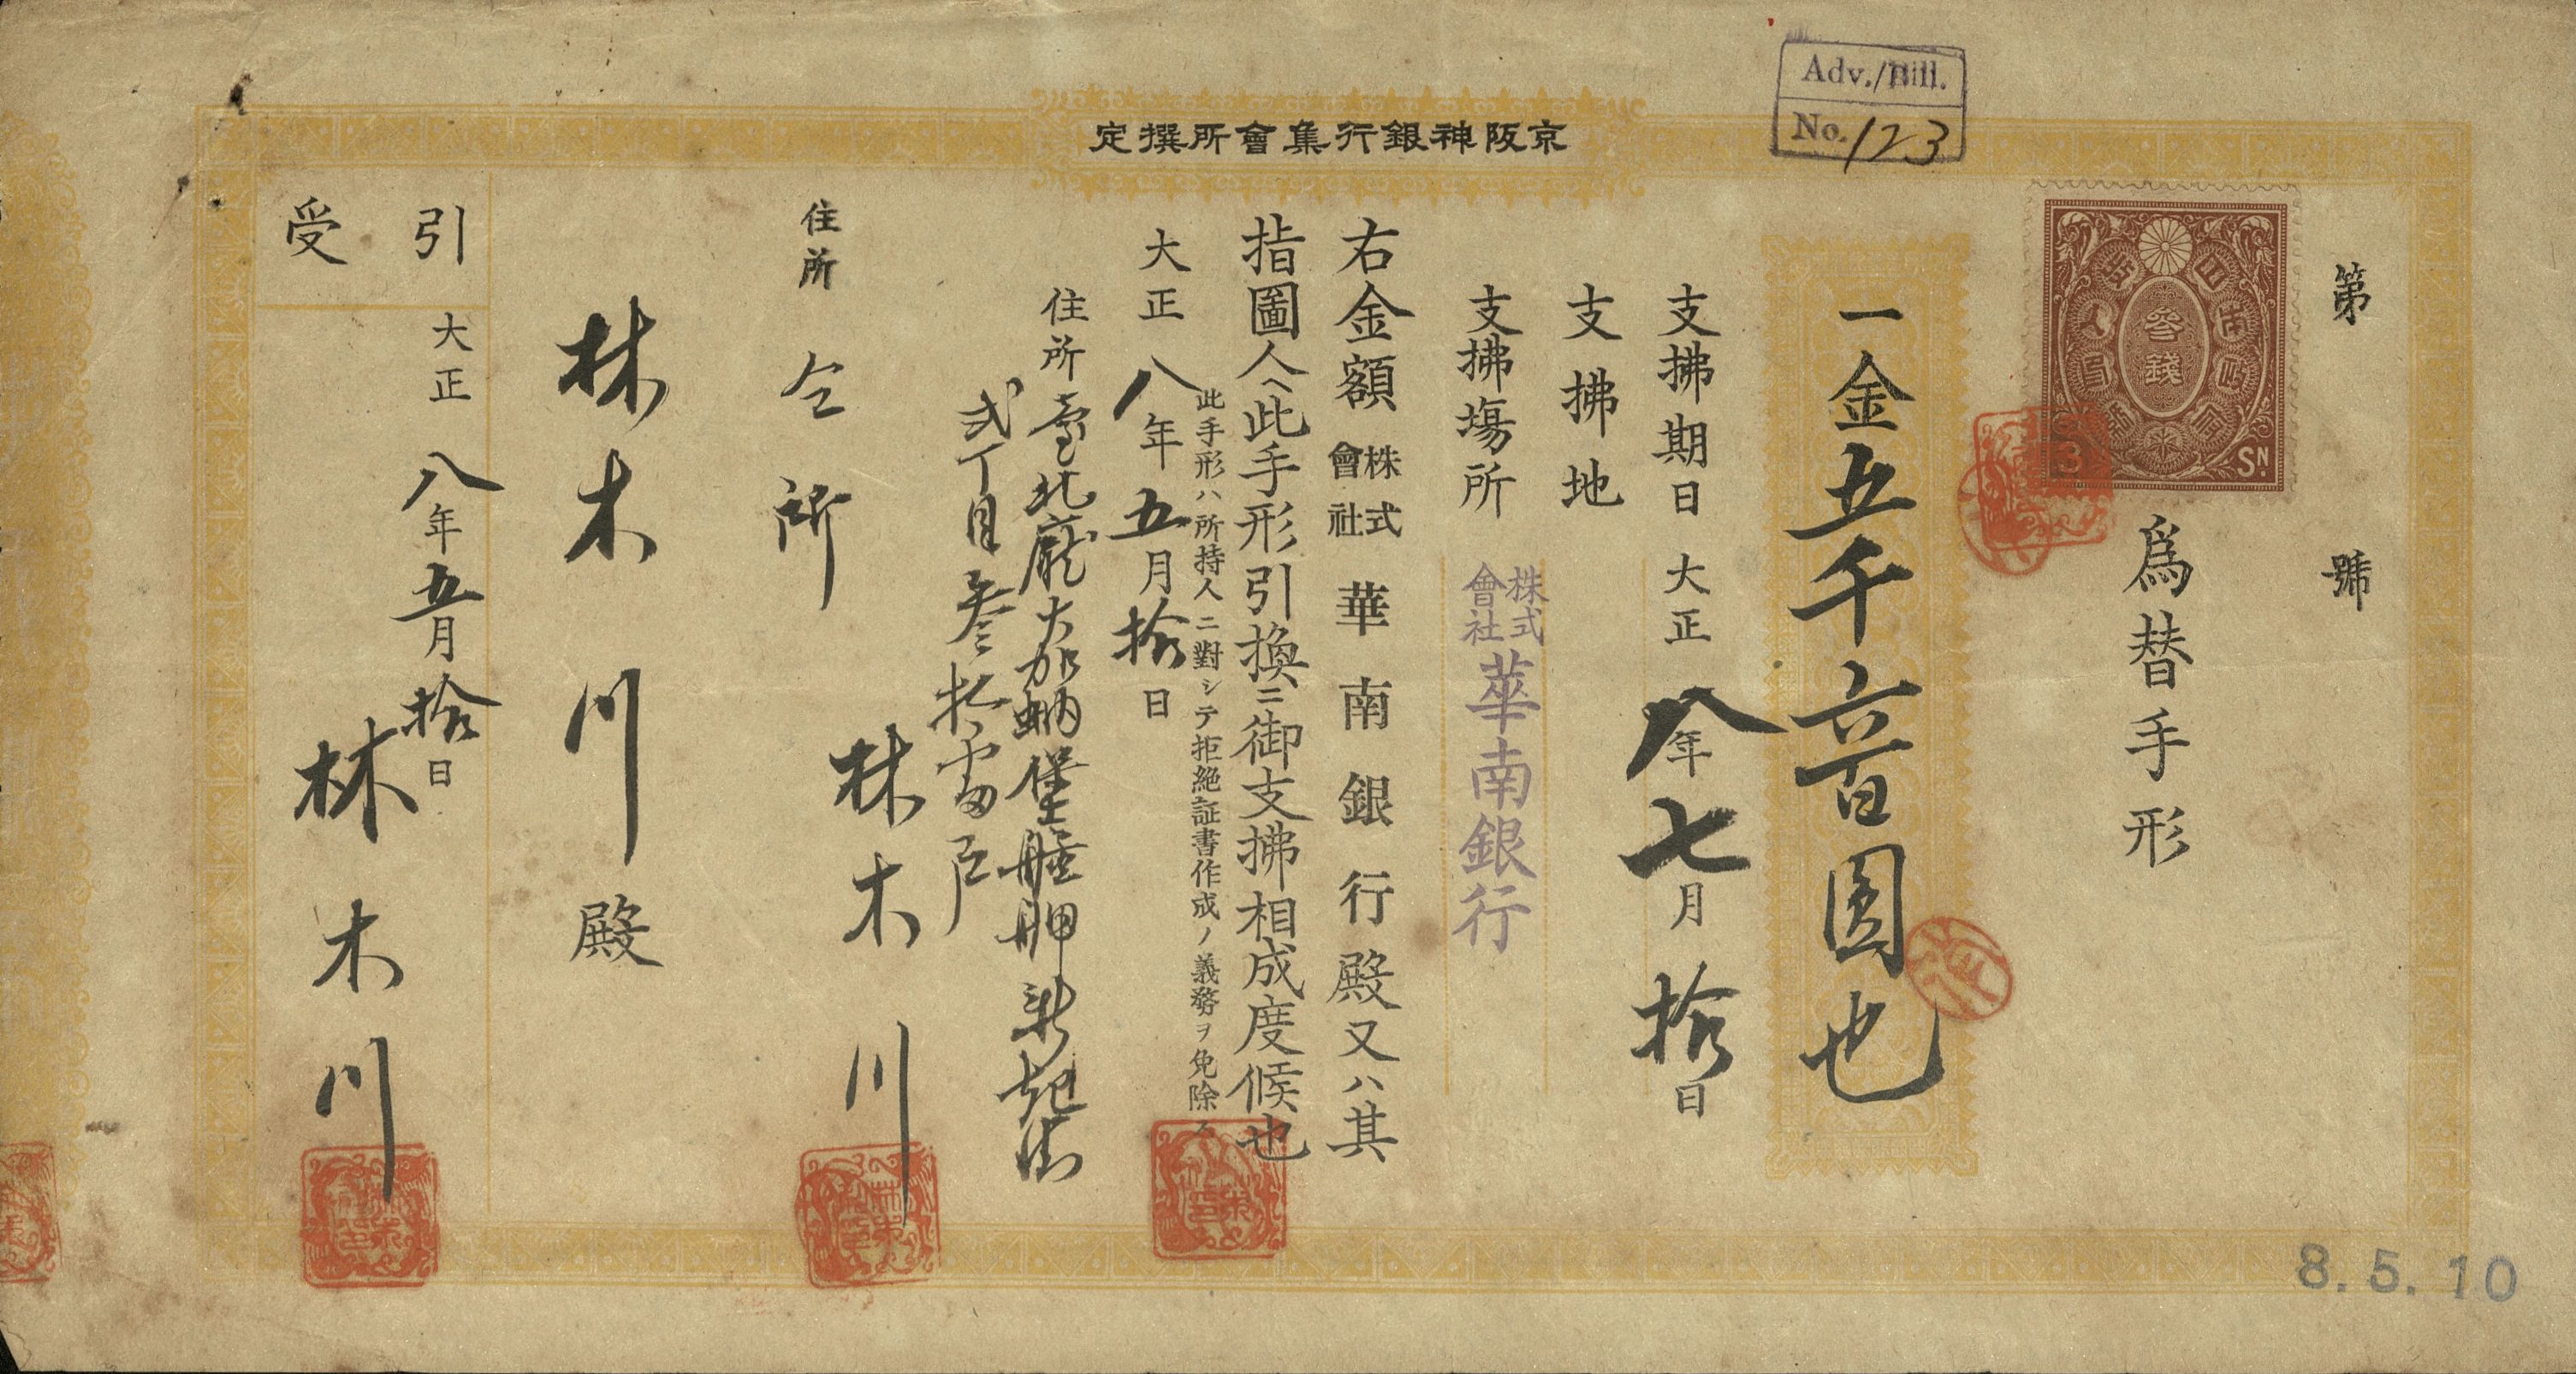 京阪神銀行集會所撰定
Adv./Bill.
No. 123
第 號
參錢
3 SN.
爲替手形
一金五千六百圓也
支拂期日 大正八年七月拾日
支拂地
支拂場所 株式會社華南銀行
右金額株式會社華南銀行殿又ハ其
指圖人ヘ此手形引換ニ御支拂相成度候也
此手形ハ所持人ニ對シテ拒絶証書作成ノ義務ヲ免除ス
大正八年五月拾日
住所 臺北廳大加蚋堡艋舺新起街
貳丁目參拾番戶
林木川
住所 仝所
林木川殿
引受
大正八年五月拾日
林木川
8.5.10